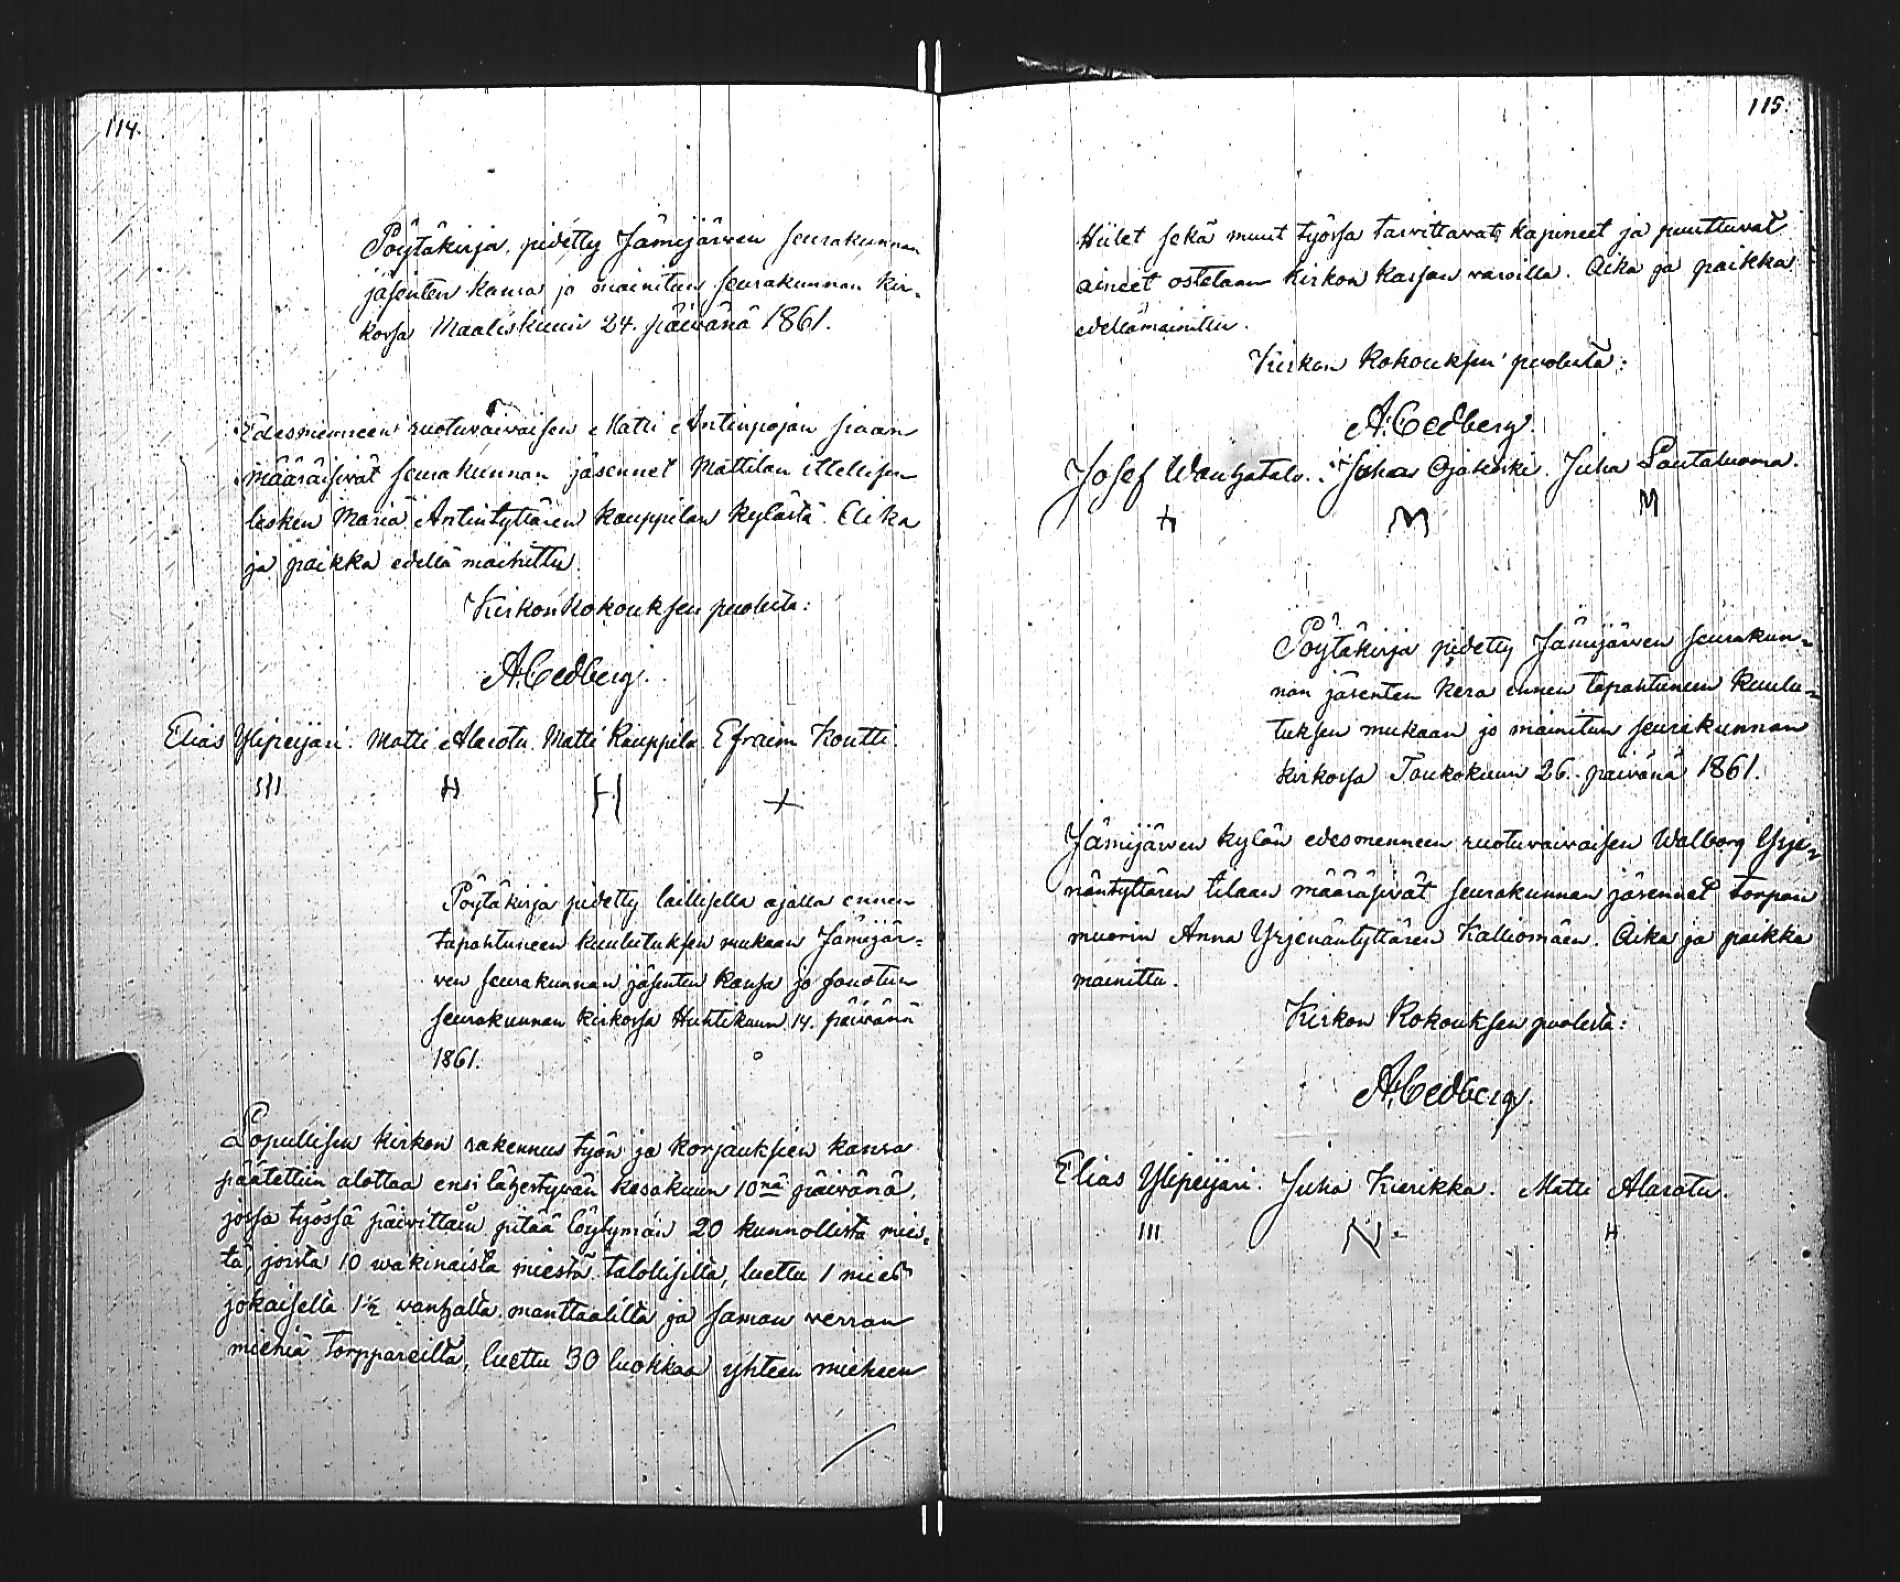 114.
Pöytäkirja, pidetty Jämijärwen seurakunnan
jäsenten kansa jo mainitun seurakunnan kir-
kossa Maaliskuun 24. päiwänä 1861.
Edesmenneen ruotuwaiwaisen Matti Antinpojan siaan
määräisiwät seurakunnan jäsennet Mattilan ittellisen
lesken Maria Antintyttären Kauppilan kylästä. Aika
ja paikka edellä mainittu.
Kirkonkokouksen puolesta:
A. Cedberg.
Elias Ylipeijari. Matti Alarotu. Matti Kauppila. Efraim Koutti.
III H H +
Pöytäkirja pidetty laillisella ajalla ennen
tapahtuneen kuulutuksen mukaan Jämijär=
wen seurakunnan jäsenten kansa jo sanotun
seurakunnan kirkossa Huhtikuun 14. päiwänä
1861.
Lopullisen kirkon rakennus työn ja korjauksien kansa
päätettiin alottaa ensi lähestywän kesäkuun 10nä päiwänä,
jossa työssä päiwittäin pitää löytymän 20 kunnollista mies-
tä, joista 10 wäkinäistä miestä talollisilta, luettu 1 mies
jokaiselta 1½ wanhalta manttaalilta ja saman werran
miehiä torppareilta, luettu 30 luokkaa yhteen mieheen
115.
Hiilet sekä muut työssä tarwittawat kapineet ja puuttuwat
aineet ostetaan kirkon kassan waroilla. Aika ja paikka
edellämainittu.
Kirkon kokouksen puolesta:
A. Cedberg.
Josef Wanhatalo. Juha Ojakoski. Juha Lautaluoma.
+ M M
Pöytäkirja pidetty Jämijärwen seurakun=
nan jäsenten kera ennen tapahtuneen kuulu=
tuksen mukaan jo mainitun seurakunnan
kirkossa Toukokuun 26. päiwänä 1861.
Jämijärwen kylän edesmenneen ruotuwaiwaisen Walborg Yrje=
näntyttären tilaan määräsiwät seurakunnan jäsennet torpan
muorin Anna Yrjenäntyttären Kalliomäen. Aika ja paikka
mainittu.
Kirkon Kokouksen puolesta:
A. Cedberg.
Elias Ylipeijari. Juha Kierikka. Matti Alarotu.
III N H